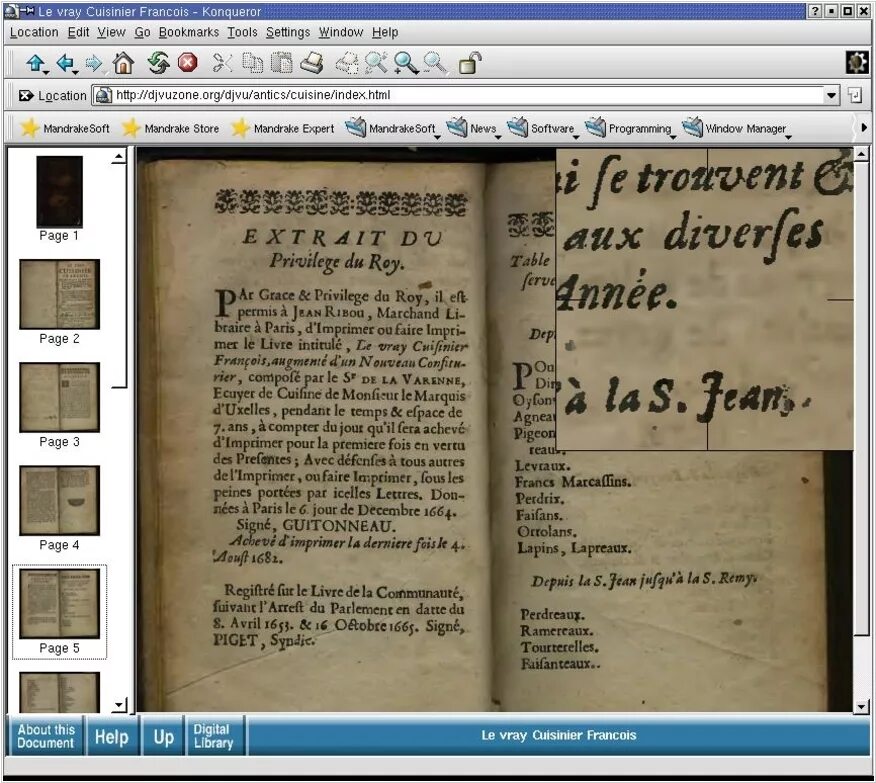 Le vray Cuisinier Francois - Konqueror
Location Edit View Go Bookmarks Tools Settings Window Help
Location http://djvuzone.org/djvu/antics/cuisine/index.html
MandrakeSoft Mandrake Store Mandrake Expert MandrakeSoft News Software Programming Window Manager
Page 1
Page 2
Page 3
Page 4
Page 5
EXTRAIT DU
Privilege du Roy.
PAr Grace & Privilege du Roy, il eſt
permis à JEAN RIBOU, Marchand Li-
braire à Paris, d'Imprimer ou faire Impri-
mer le Livre intitulé, Le vray Cuiſinier
François, augmenté d'un Nouveau Confitu-
rier, compoſé par le Sr DE LA VARENNE,
Ecuyer de Cuiſine de Monſieur le Marquis
d'Uxelles, pendant le temps & eſpace de
7. ans, à compter du jour qu'il ſera achevé
d'Imprimer pour la premiere fois en vertu
des Preſentes; Avec défenſes à tous autres
de l'Imprimer, ou faire Imprimer, ſous les
peines portées par icelles Lettres. Don-
nées à Paris le 6. jour de Decembre 1664.
Signé, GUITONNEAU.
Achevé d'imprimer la derniere fois le 4.
Aouſt 1682.
Regiſtré ſur le Livre de la Communauté,
ſuivant l'Arreſt du Parlement en datte du
8. Avril 1653. & 16. Octobre 1665. Signé,
PIGET, Syndic.
Table
ſerve
Dep
POu
Din
Oyſon
Agneau
Pigeon
reau
Levraux.
Francs Marcaſſins.
Perdrix.
Faiſans.
Ortolans.
Lapins, Lapreaux.
Depuis la S. Jean juſqu'à la S. Remy.
Perdreaux.
Ramereaux.
Tourterelles.
Faiſanteaux.
i ſe trouvent &
aux diverſes
Année.
à la S. Jean.
About this
Document
Help
Up
Digital
Library
Le vray Cuisinier Francois